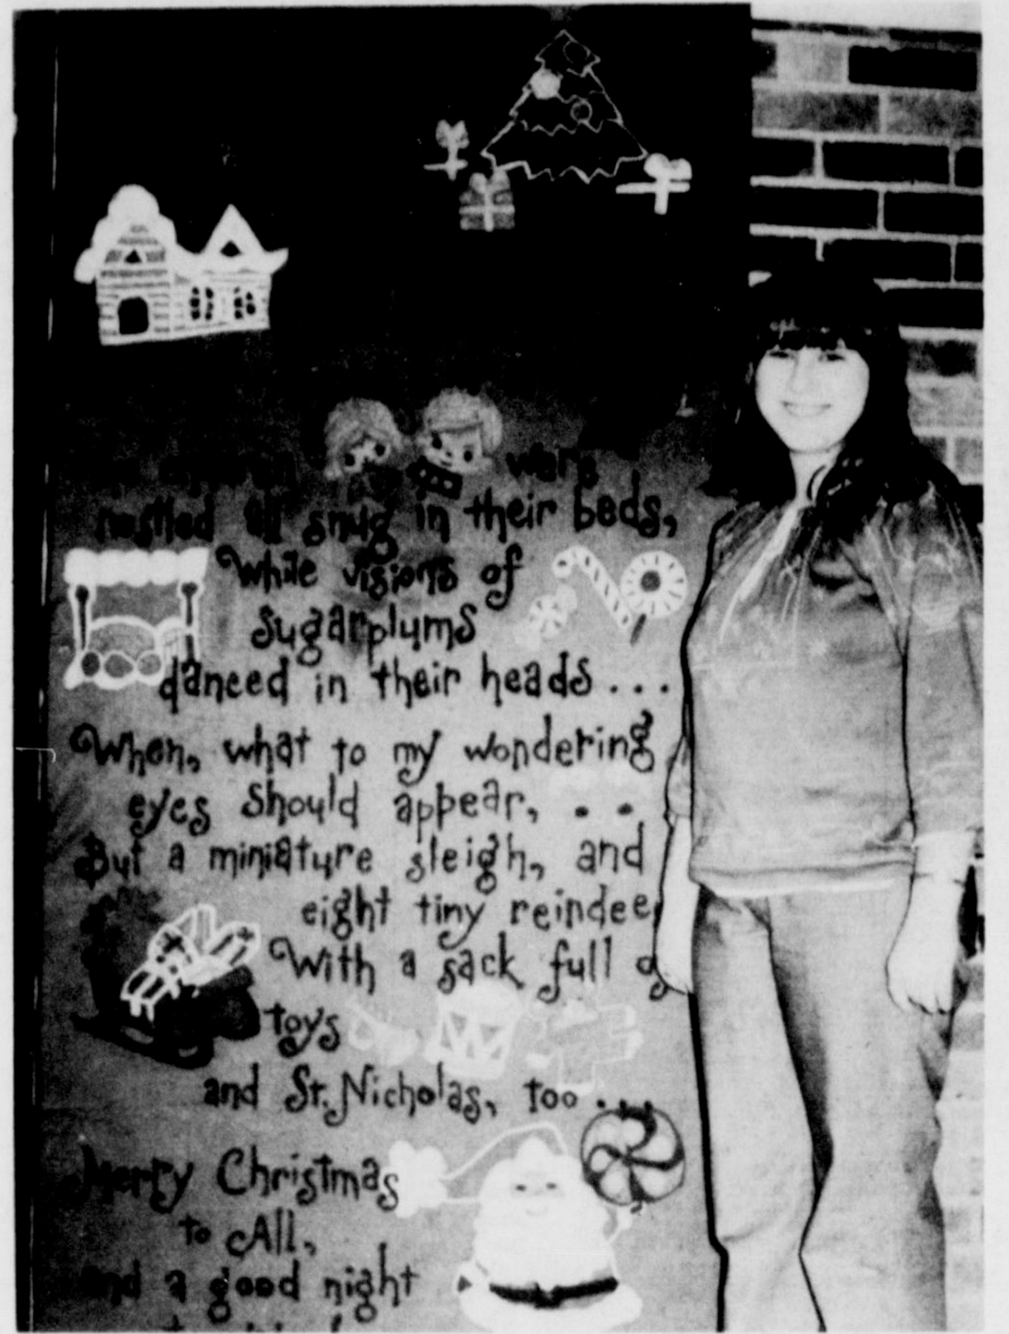 were
nestled all snug in their beds,
While visions of
sugarplums
danced in their heads ...
When, what to my wondering
eyes should appear, . .
But a miniature sleigh, and
eight tiny reindee
With a sack full o
toys
and St. Nicholas, too ...
Merry Christmas
to All,
and a good night